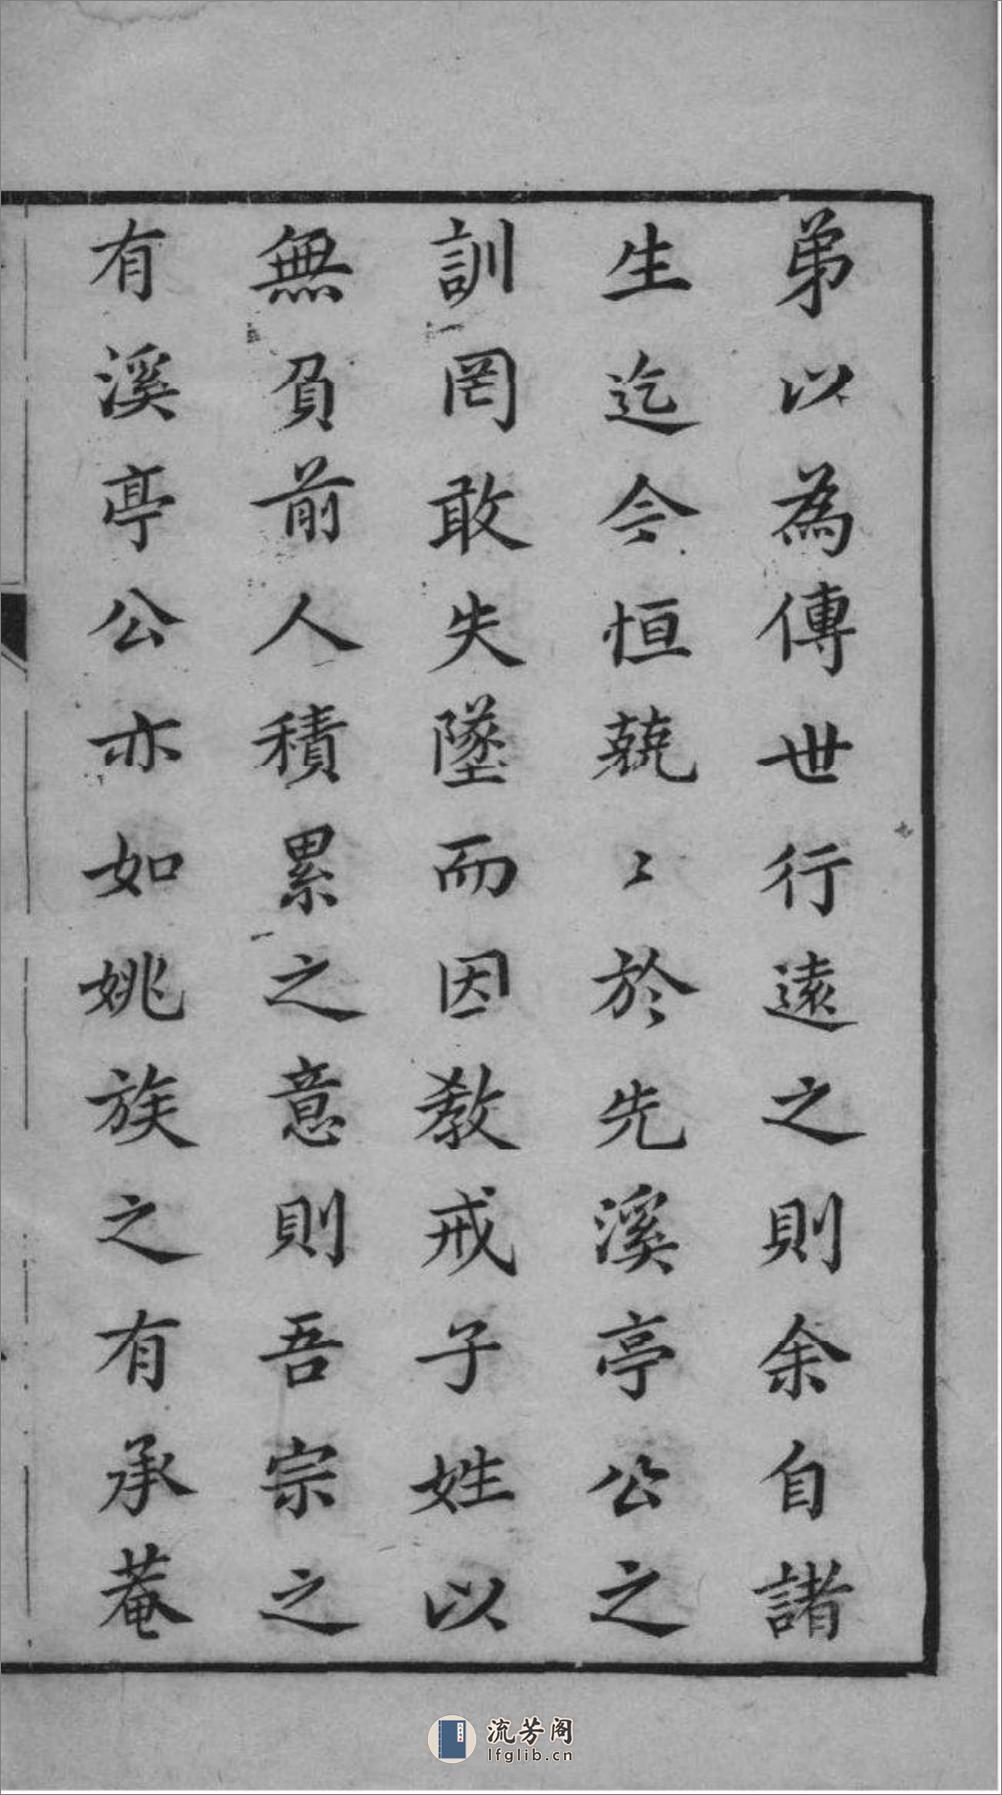 弟以為傳世行遠之則余自諸
生迄今恒兢〻於先溪亭公之
訓罔敢失墜而因教戒子姓以
無負前人積累之意則吾宗之
有溪亭公亦如姚族之有承菴
流芳阁
lfglib.cn